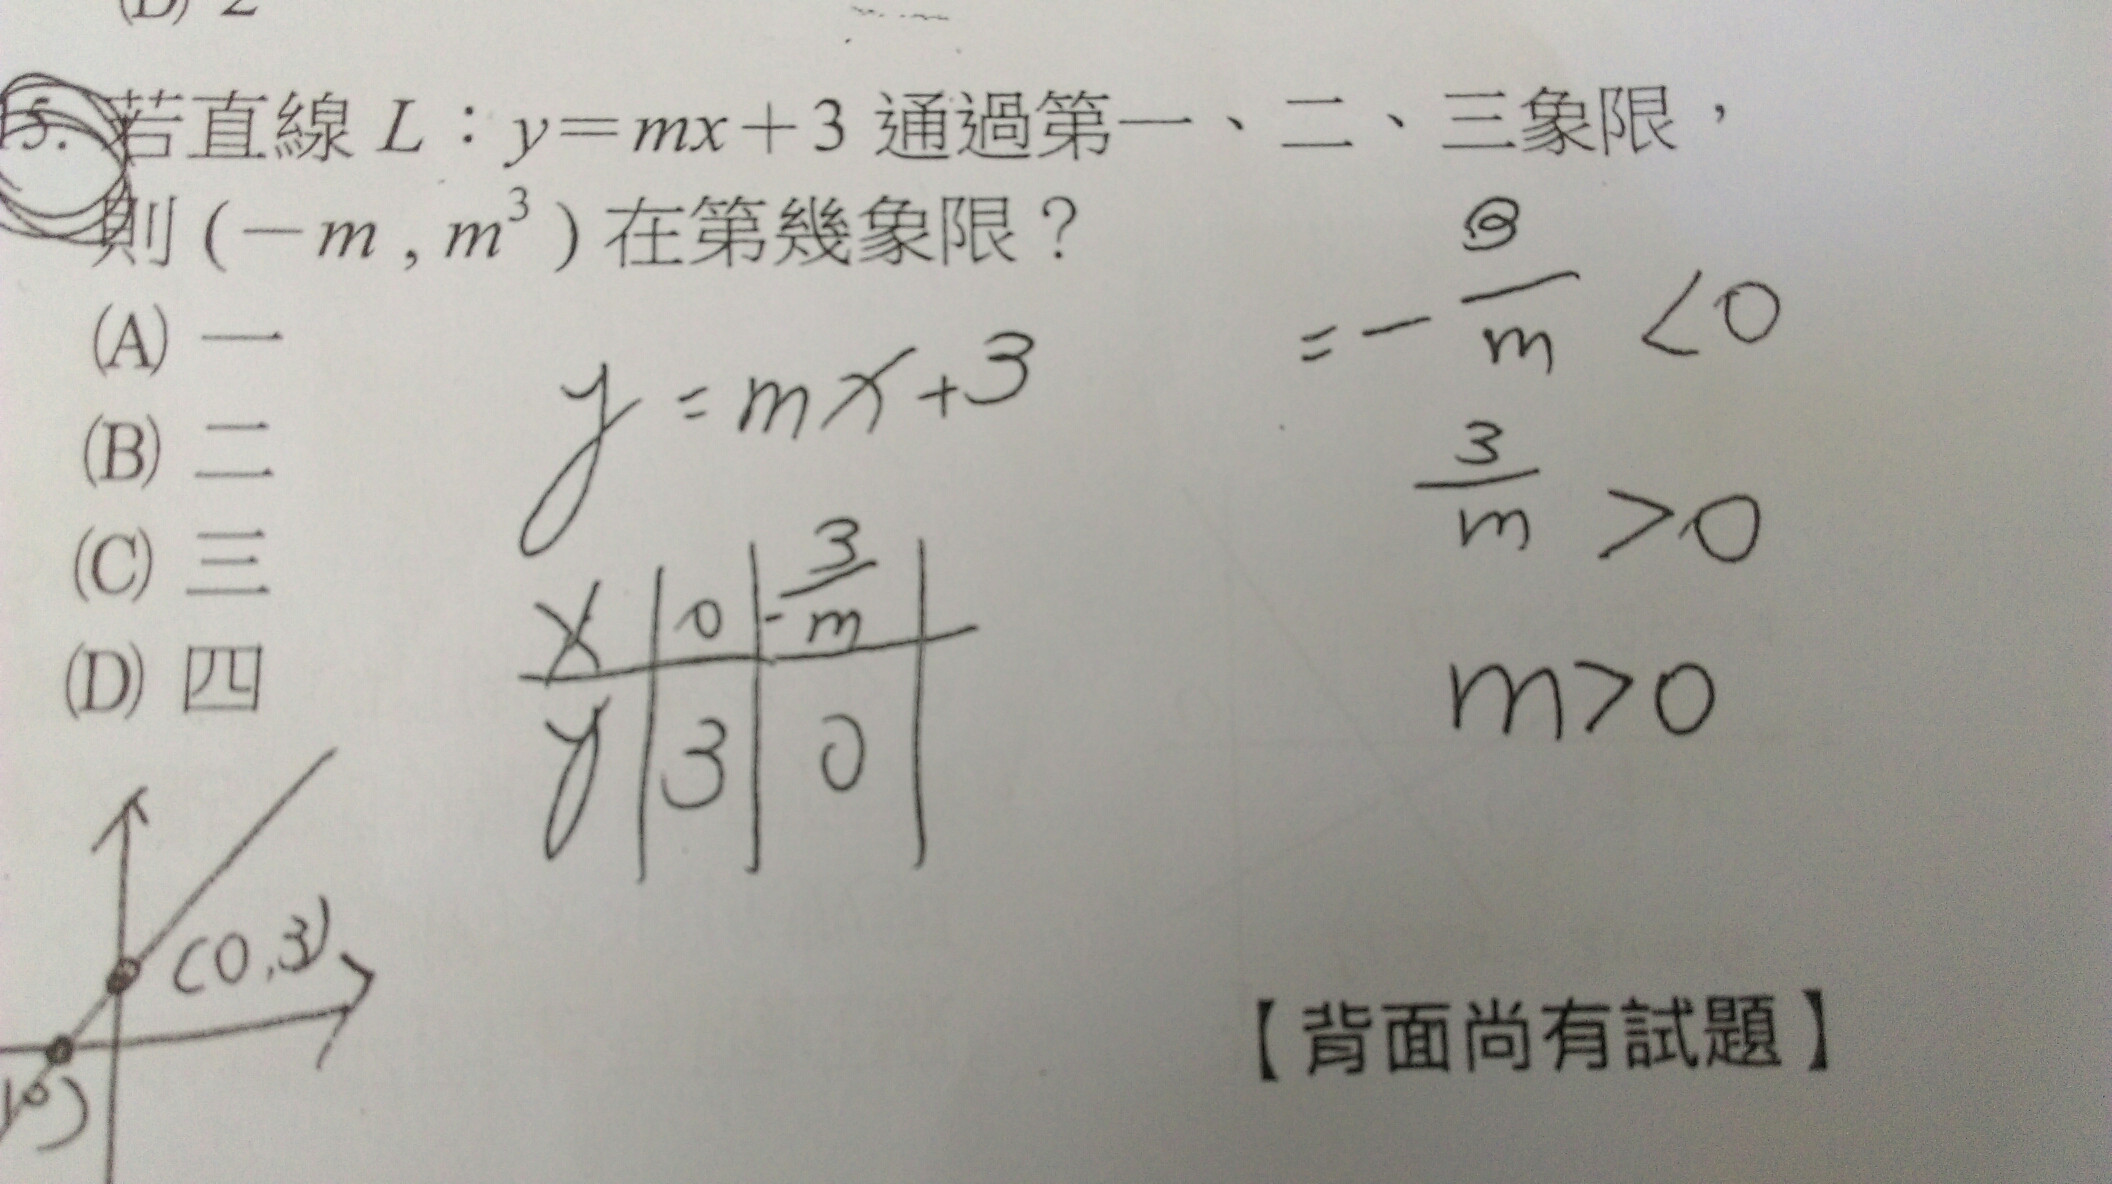 (D) 2
15. 若直線 L：y＝mx＋3 通過第一、二、三象限，
則 (－m , m³ ) 在第幾象限？
(A) 一
(B) 二
(C) 三
(D) 四
y = mx+3
x | 0 | -3/m
y | 3 | 0
= - 3/m < 0
3/m > 0
m > 0
(0,3)
【背面尚有試題】